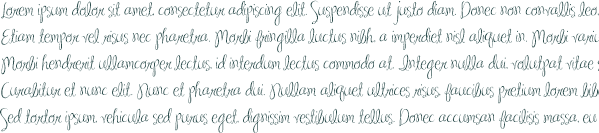 Lorem ipsum dolor sit amet, consectetur adipiscing elit. Suspendisse ut justo diam. Donec non convallis leo.
Etiam tempor vel risus nec pharetra. Morbi fringilla luctus nibh, a imperdiet nisl aliquet in. Morbi variu
Morbi hendrerit ullamcorper lectus, id interdum lectus commodo at. Integer nulla dui, volutpat vitae
Curabitur et nunc elit. Nunc et pharetra dui. Nullam aliquet ultrices risus, faucibus pretium lorem bib
Sed tortor ipsum, vehicula sed purus eget, dignissim vestibulum tellus. Donec accumsan facilisis massa, eu